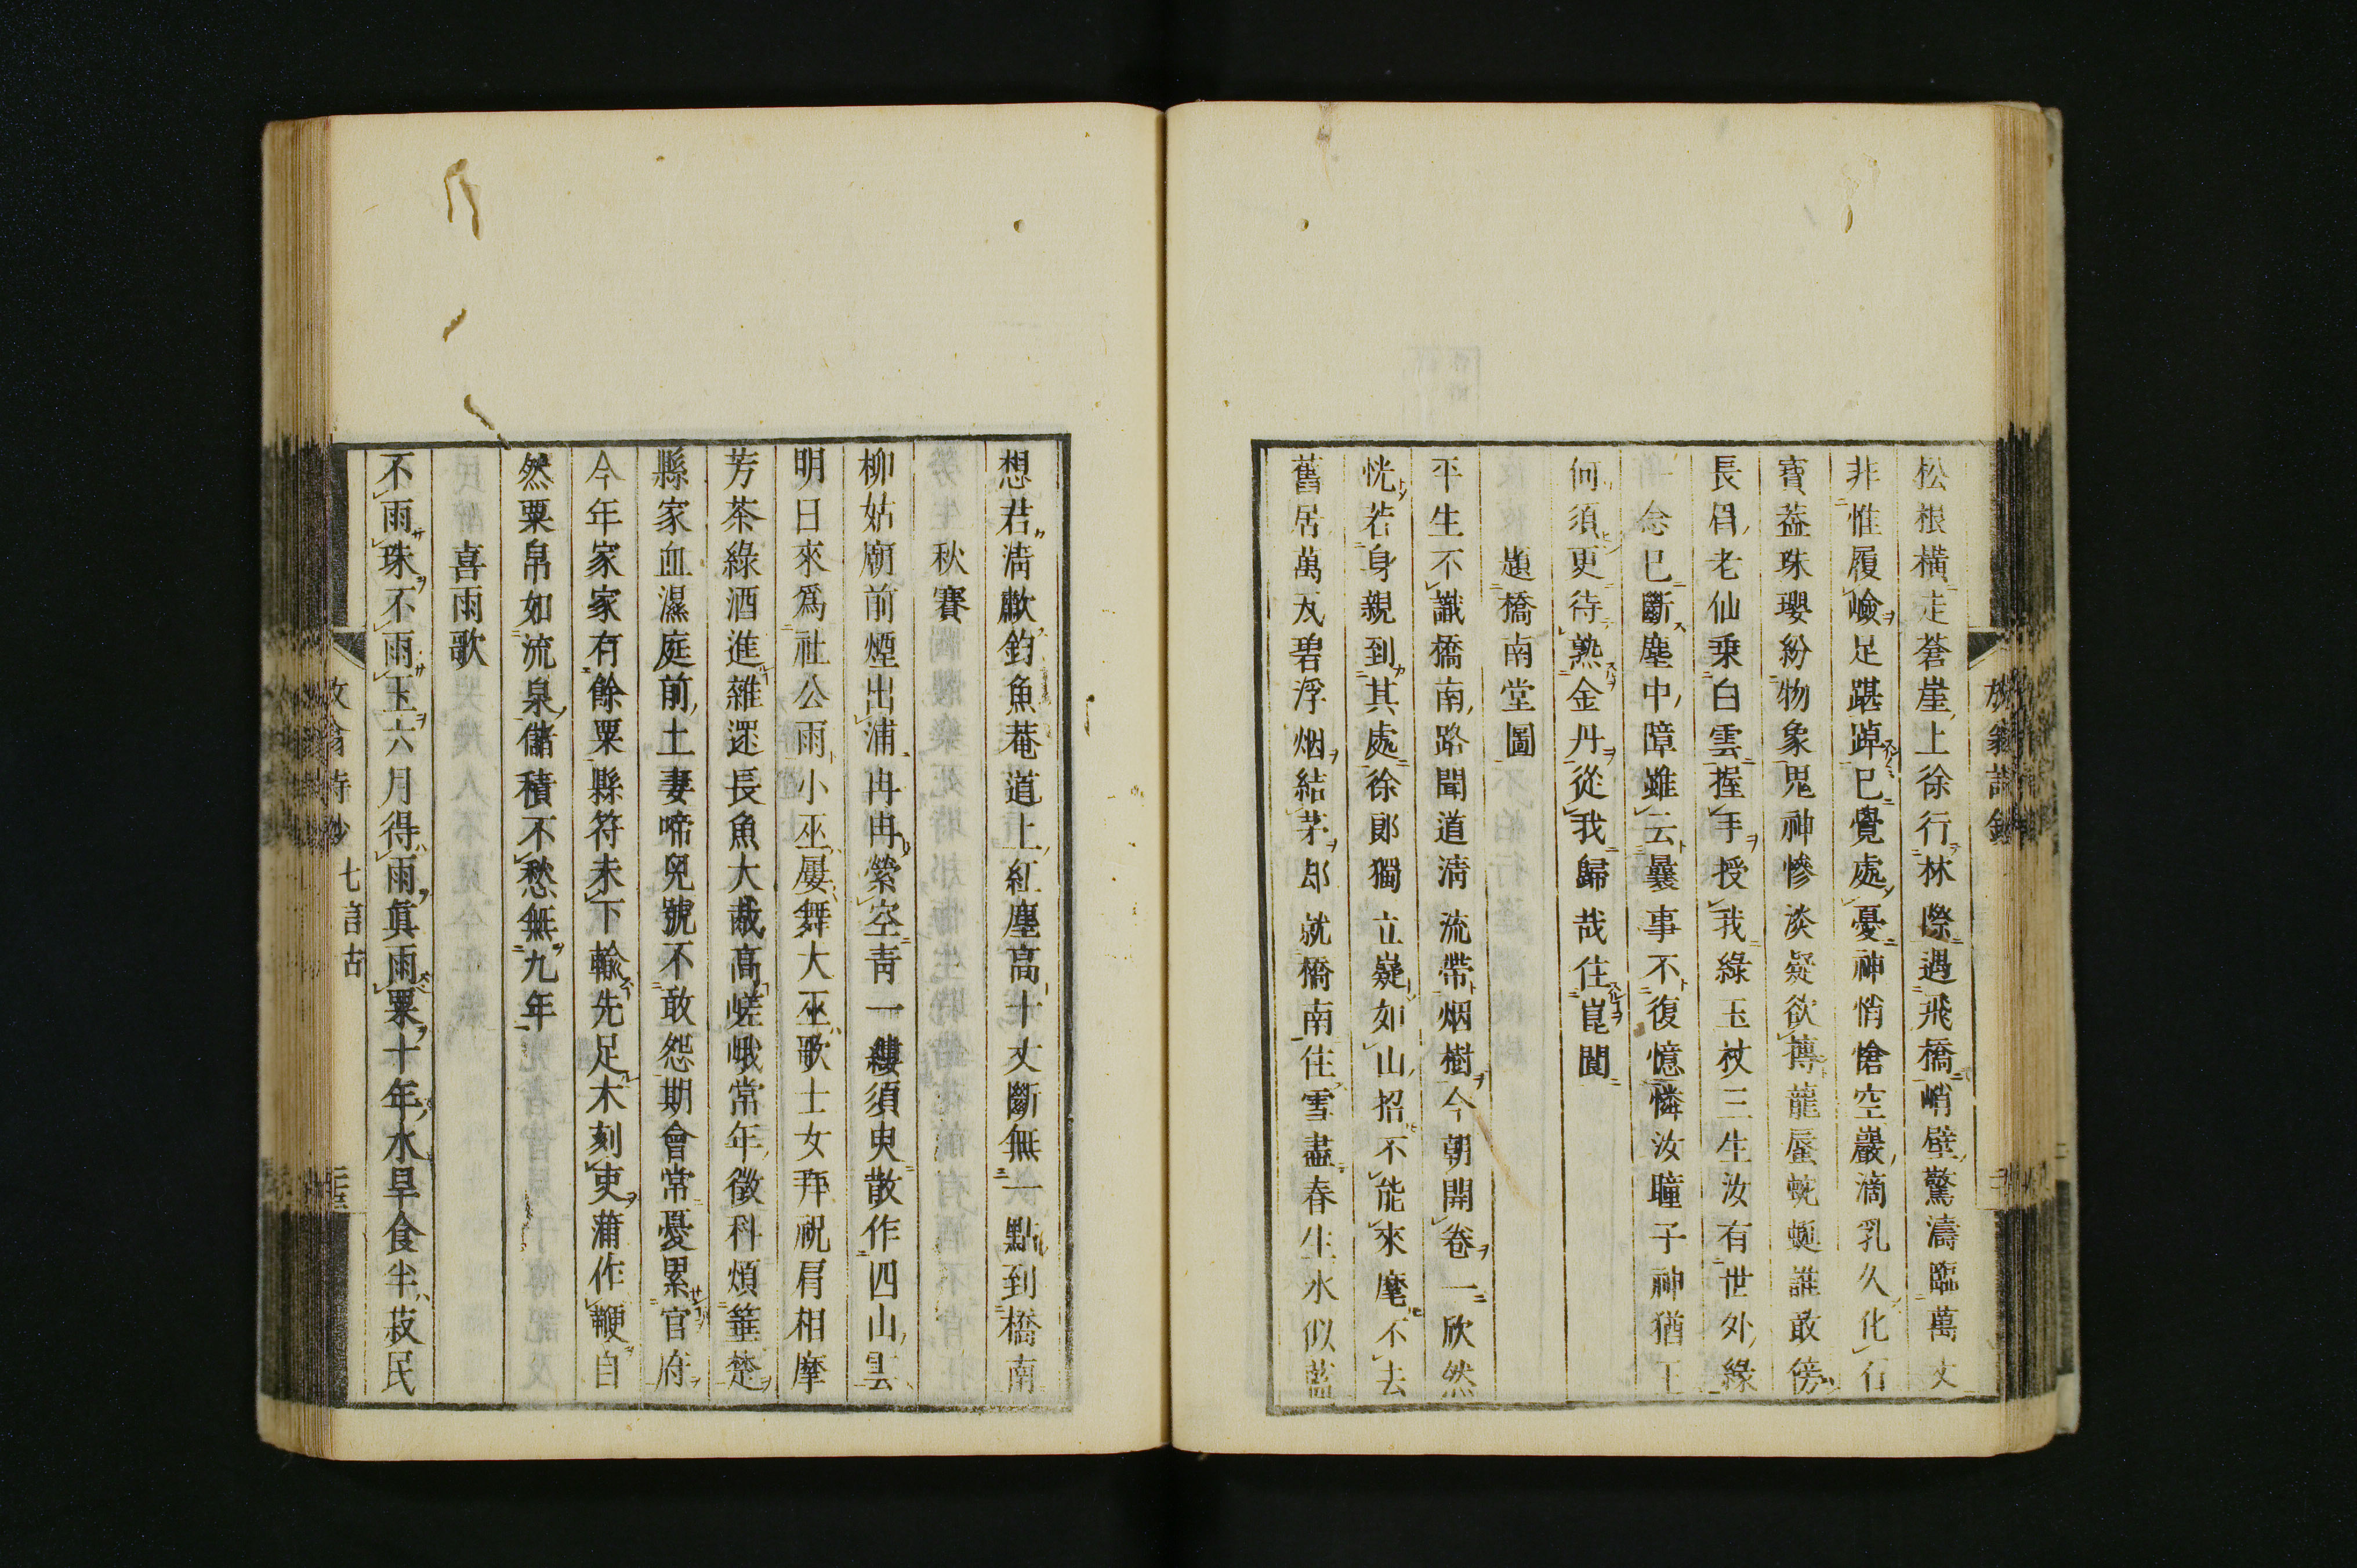 松根橫走蒼崖上徐行林際遇飛橋峭壁驚濤臨萬丈
非惟履嶮足踸踔已覺處憂神悄愴空巖滴乳久化石
寶葢珠瓔紛物象鬼神慘淡疑欲摶龍蜃蜿蜒誰敢傍
長眉老仙乗白雲握手授我綠玉杖三生汝有世外緣
一念已斷塵中障雖云曩事不復憶憐汝瞳子神猶王
何須更待熟金丹從我歸哉住崑閬
題橋南堂圖
平生不識橋南路聞道淸流帶烟樹今朝開卷一欣然
恍若身親到其處徐郎獨立嶷如山招不能來麾不去
舊居萬瓦碧浮烟結茅却就橋南住雪盡春生水似藍
想君淸歗鈞魚菴道上紅塵高十丈斷無一點到橋南
秋賽
柳姑廟前煙出浦冉冉縈空靑一縷須臾散作四山雲
明日來爲社公雨小巫屢舞大巫歌士女拜祝肩相摩
芳茶綠酒進雜遝長魚大胾高嵯峨常年徵科煩箠楚
縣家血濕庭前土妻啼兒號不敢怨期會常憂累官府
今年家家有餘粟縣符未下輸先足木刻吏蒲作鞭自
然粟帛如流泉儲積不愁無九年
喜雨歌
不雨珠不雨玉六月得雨眞雨粟十年水旱食半菽民
放翁詩鈔
七言古